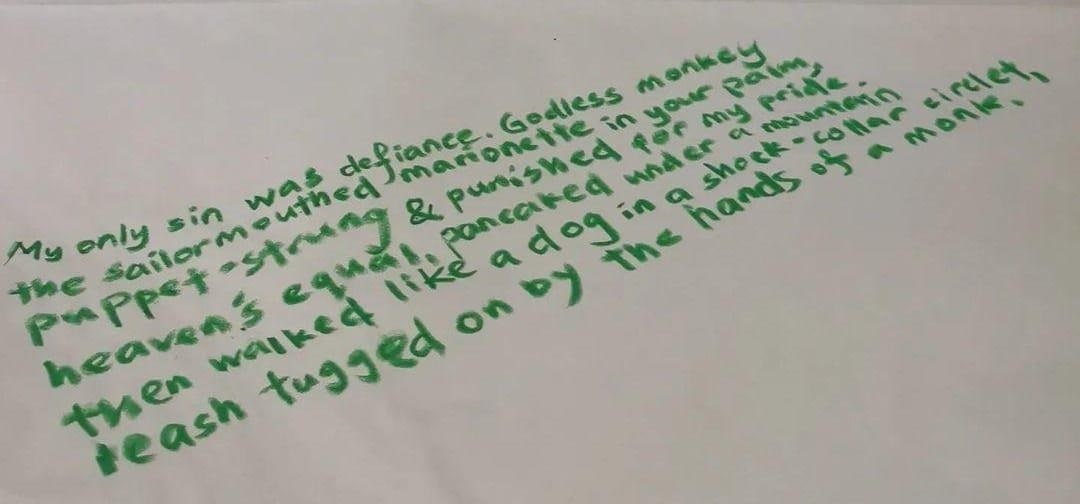 My only sin was defiance. Godless monkey
the sailormouthed marionette in your palm,
puppet-strung & punished for my pride.
heaven's equal, pancaked under a mountain
then walked like a dog in a shock-collar circlet,
leash tugged on by the hands of a monk.